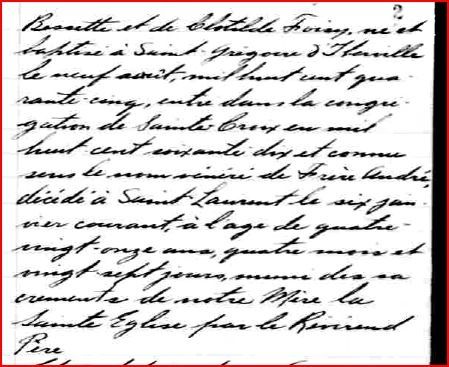 2
Bessette et de Clotilde Foisy, né et
baptisé à Saint Grégoire d'Iberville
le neuf août, mil huit cent qua-
rante-cinq, entré dans la congré-
gation de Sainte Croix en mil
huit cent soixante dix et connu
sous le nom vénéré de Frère André,
décédé à Saint Laurent le six jan-
vier courant, à l'age de quatre-
vingt-onze ans, quatre mois et
vingt-sept jours, muni des sa
crements de notre Mère la
Sainte Eglise par le Révérend
Père